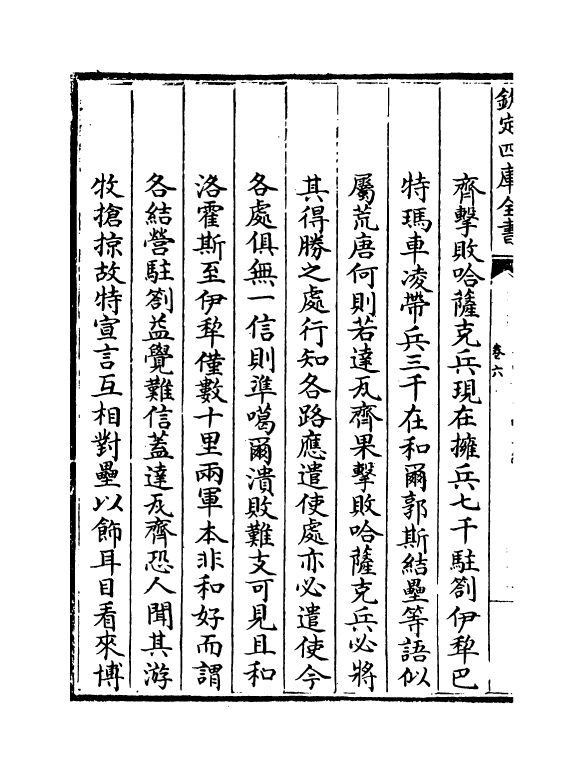 欽定四庫全書
卷六
齊擊敗哈薩克兵現在擁兵七千駐劄伊犂巴
特瑪車凌帶兵三千在和爾郭斯結壘等語似
屬荒唐何則若達瓦齊果擊敗哈薩克兵必將
其得勝之處行知各路應遣使處亦必遣使今
各處俱無一信則準噶爾潰敗難支可見且和
洛霍斯至伊犂僅數十里兩軍本非和好而謂
各結營駐劄益覺難信蓋達瓦齊恐人聞其游
牧搶掠故特宣言互相對壘以飾耳目看來博